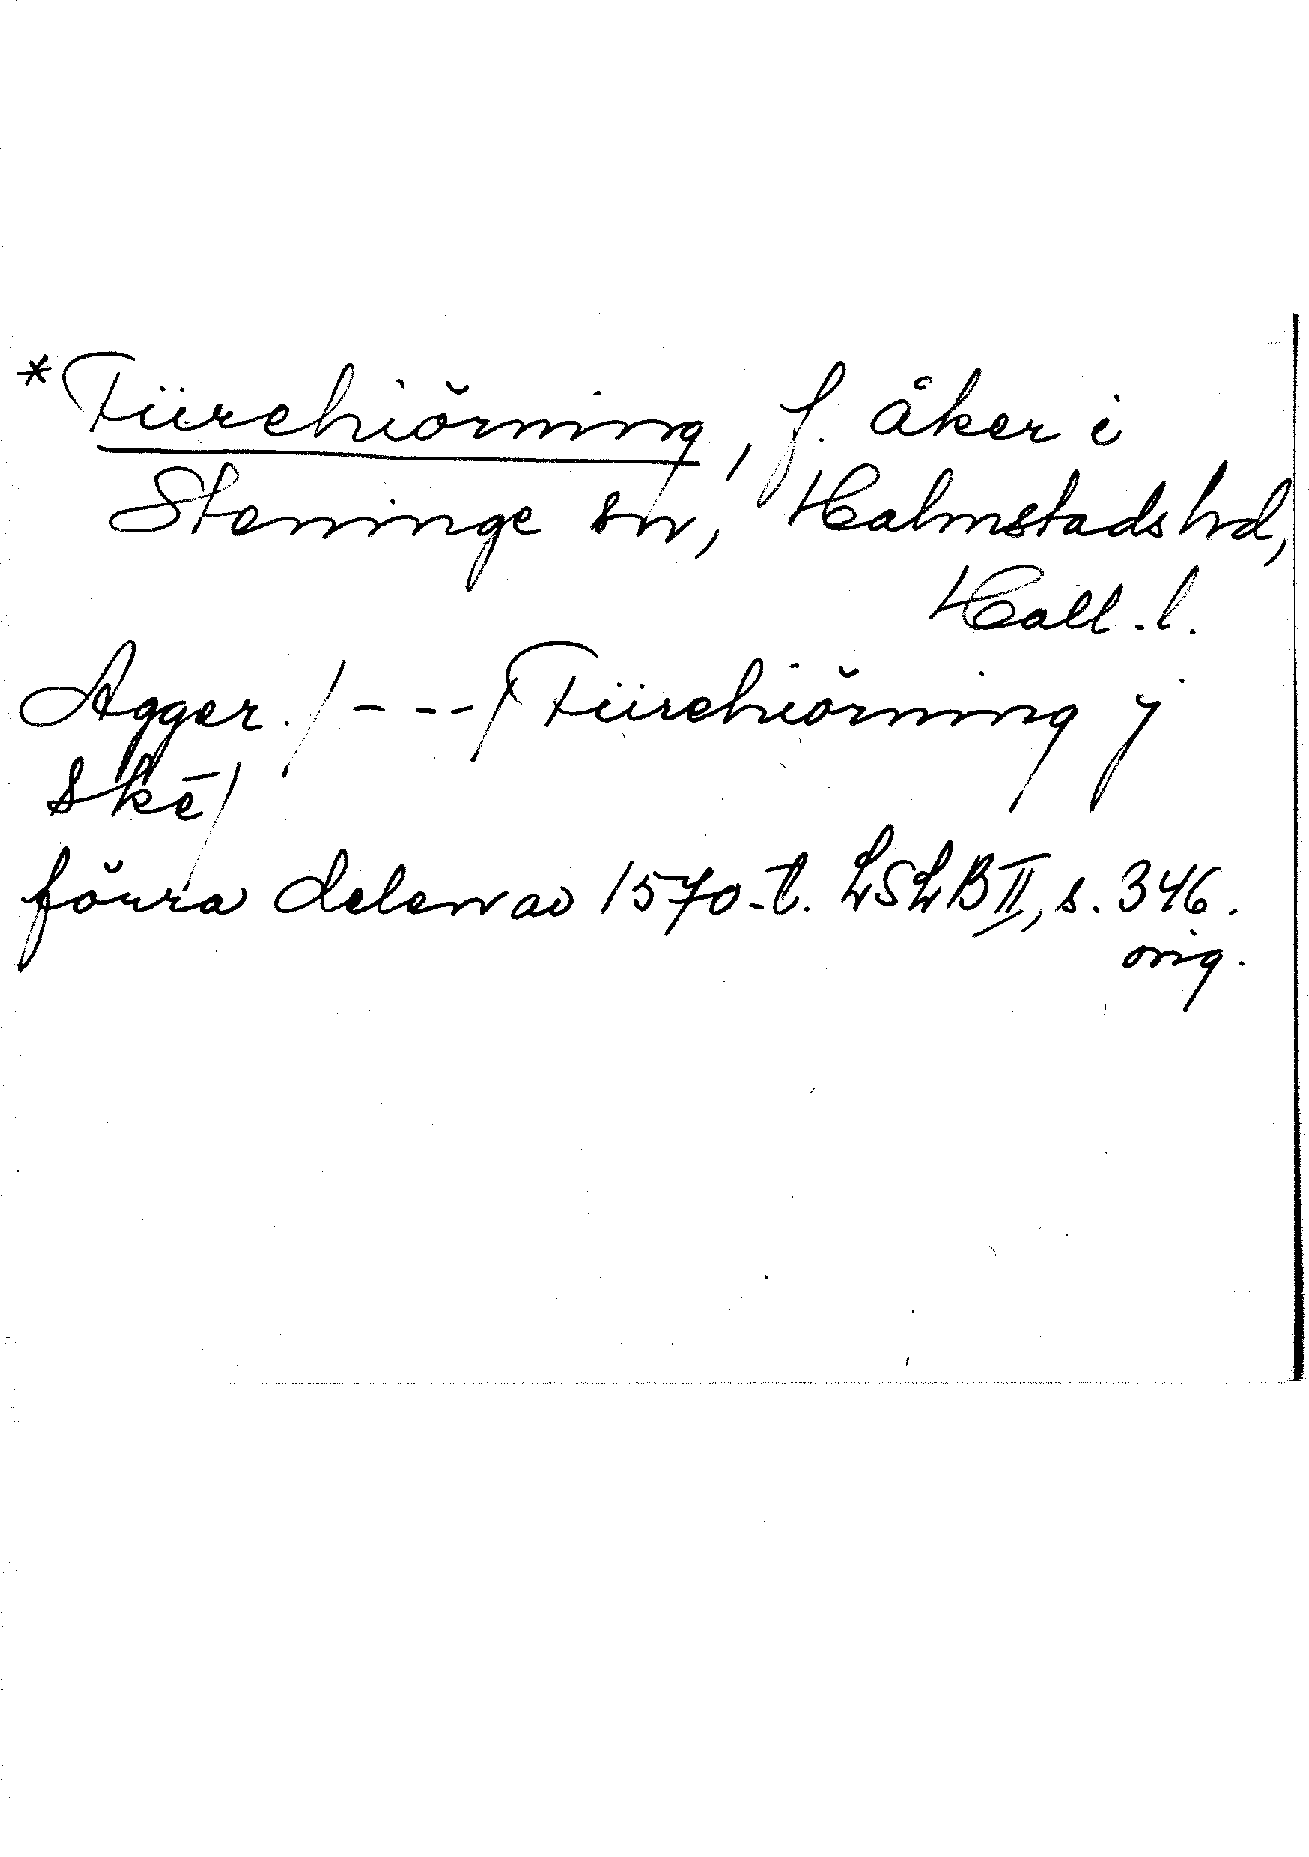 *Fiirehiörning, f. åker i
Steninge sn, Halmstads hd,
Hall. l.
Agger. /---/ Fiirehiörning j
skē/
förra delen av 1570-t. LSLB II, s. 346.
orig.